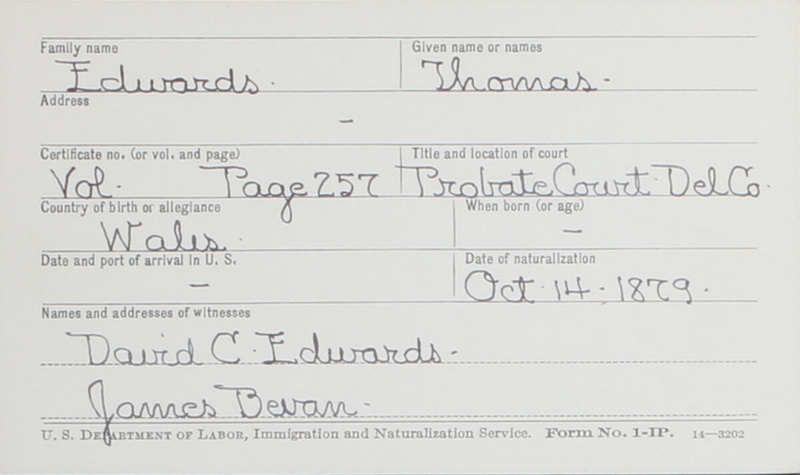 Family name Given name or names
Edwards. Thomas-
Address
-
Certificate no. (or vol. and page) Title and location of court
Vol. Page 257 Probate Court Del Co.
Country of birth or allegiance When born (or age)
Wales. -
Date and port of arrival in U. S. Date of naturalization
- Oct. 14. 1879.
Names and addresses of witnesses
David C. Edwards-
James Bevan-
U. S. DEPARTMENT OF LABOR, Immigration and Naturalization Service. Form No. 1-IP. 14—3202